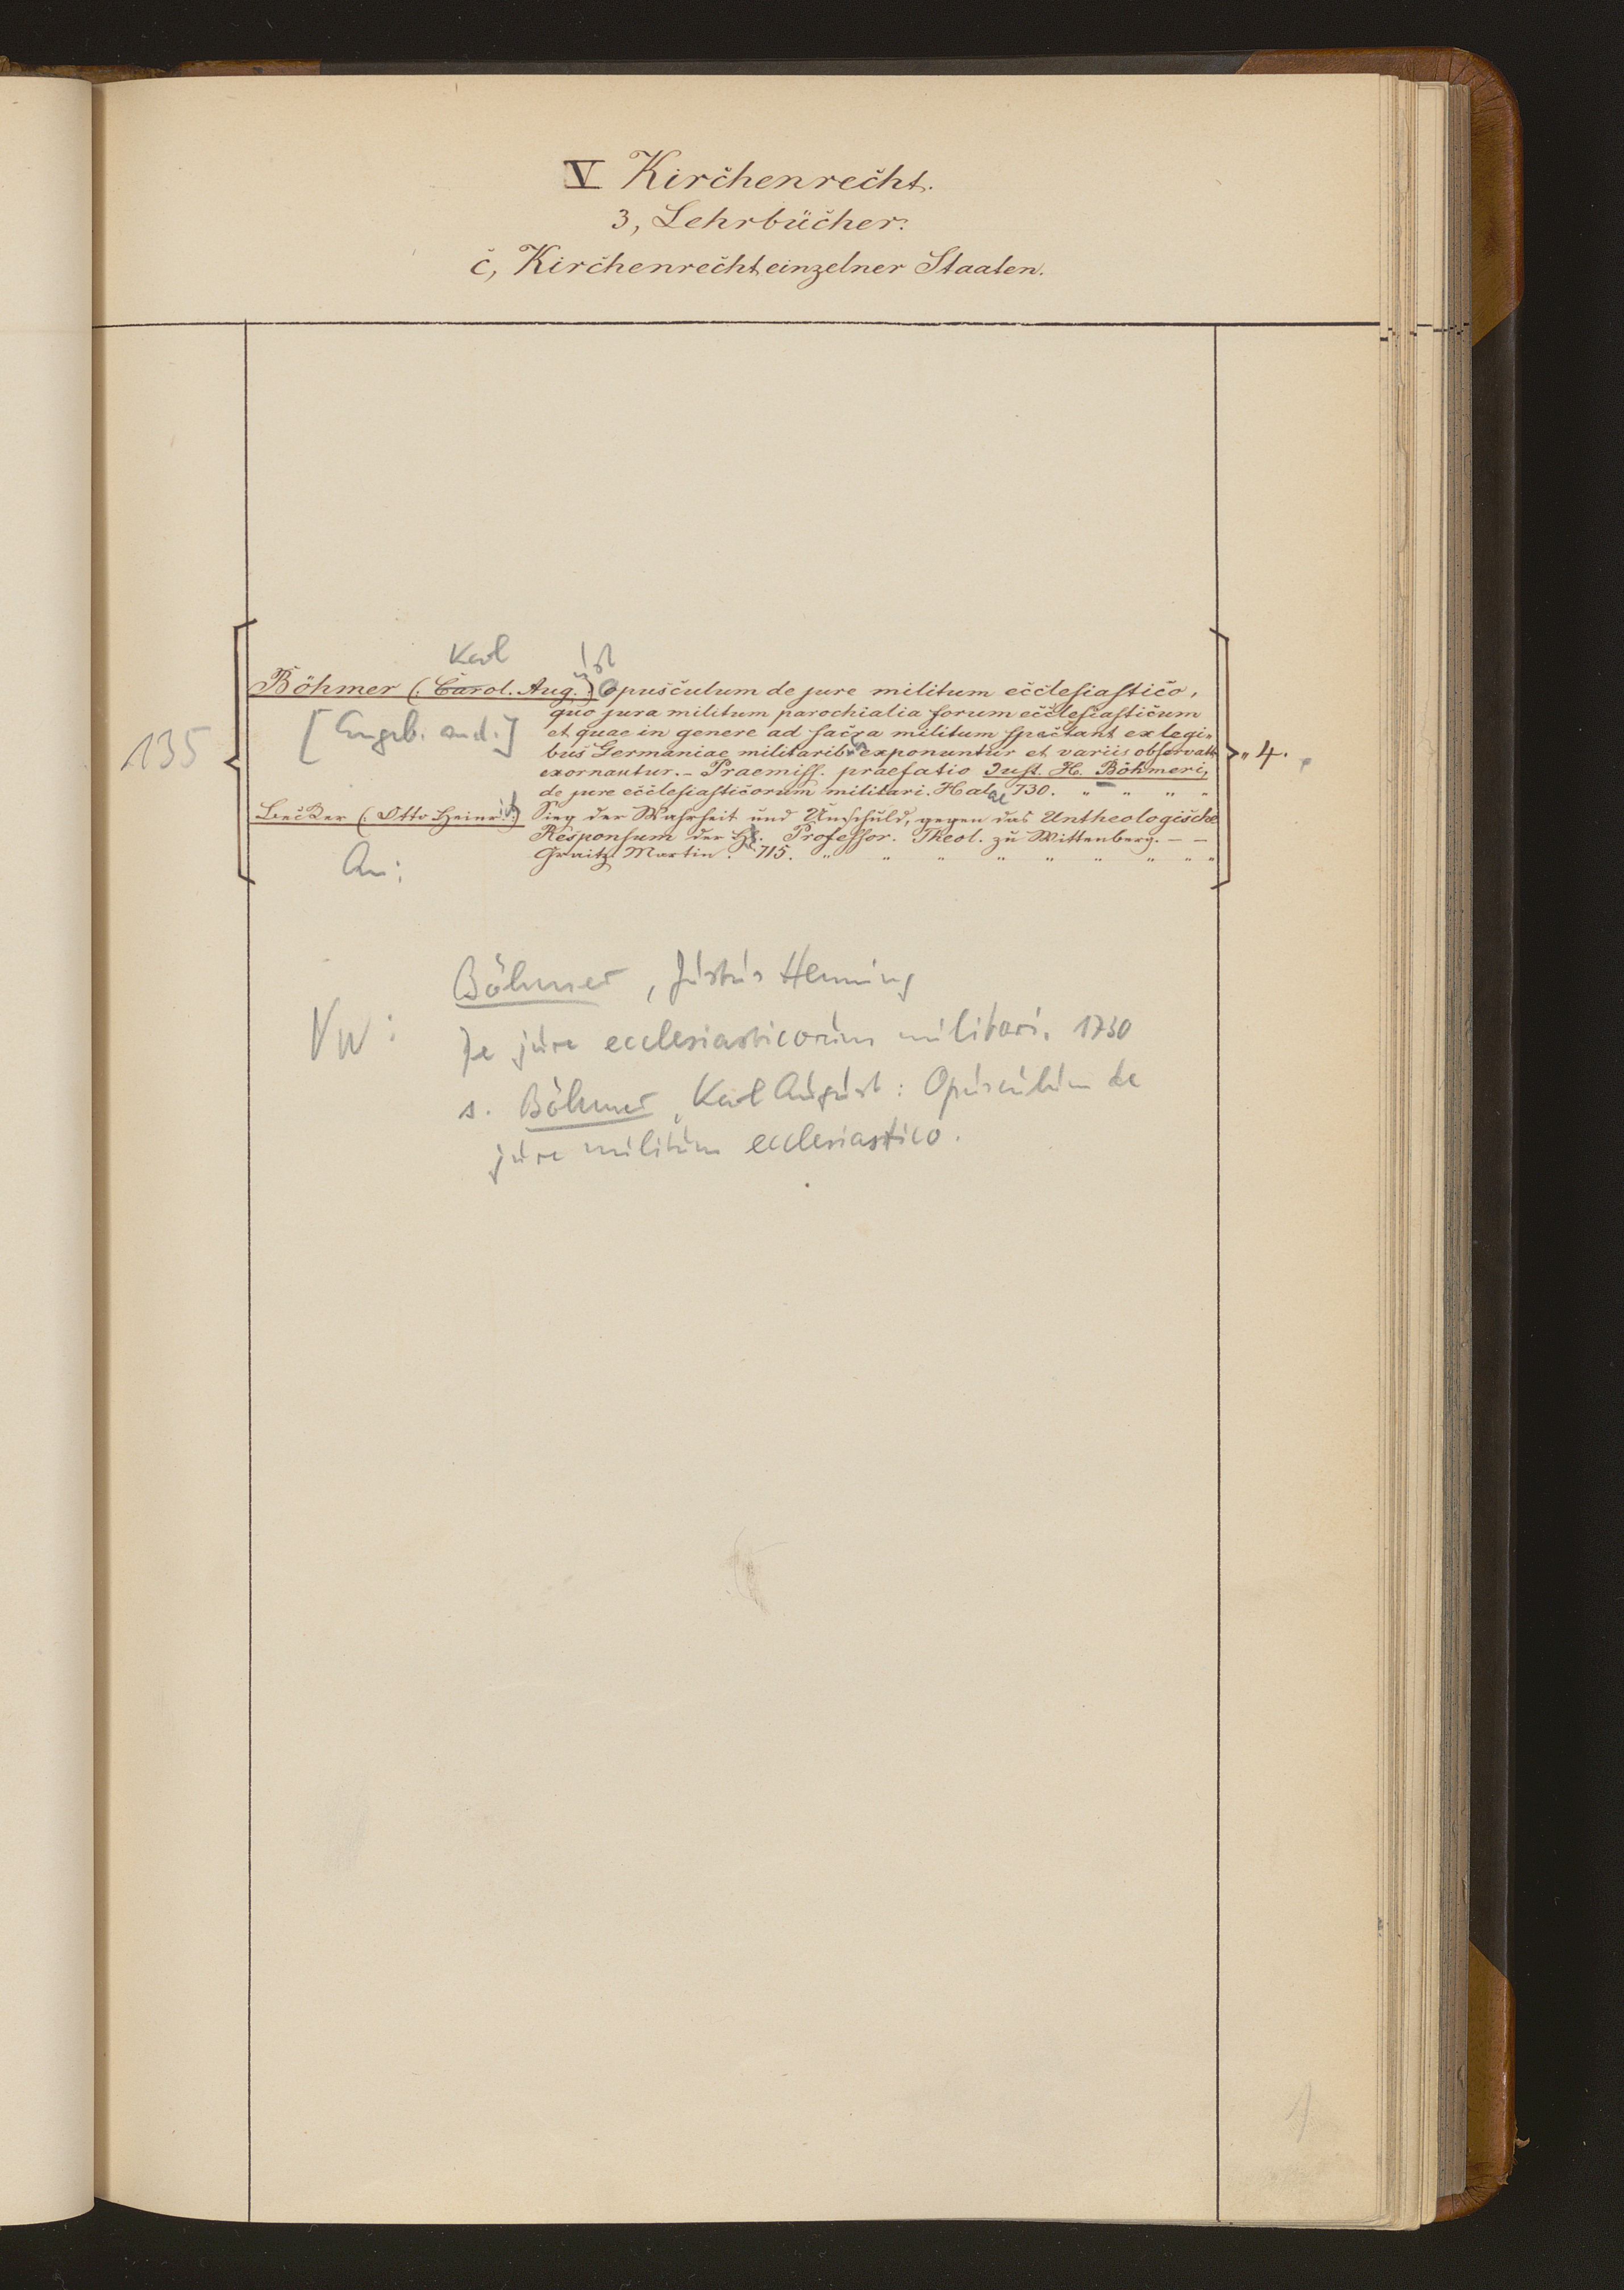 V Kirchenrecht.
3, Lehrbücher.
c, Kirchenrecht einzelner Staaten.
Karl ust
Böhmer (: Carol. Aug. :) Opusculum de jure militum ecclesiastico,
quo jura militum parochialia forum ecclesiasticum
[Angeb. and.] et quae in genere ad sacra militum spectant ex legi-
135 bus Germaniae militarib. exponuntur et variis observatt. „ 4.
exornantur. – Praemiss. praefatio Just. H. Böhmeri,
de jure ecclesiasticorum militari. Halae 730. „ „ „ „
Becker (: Otto Heinrich :) Sieg der Wahrheit und Unschuld, gegen das Untheologische
Responsum der H. Professor. Theol. zu Wittenberg. – –
An: Graitz Martin. 715. „ „ „ „ „ „ „ „ „
Böhmer, Justus Henning
VW: De jure ecclesiasticorum militari. 1730
s. Böhmer, Karl August: Opusculum de
jure militum ecclesiastico.